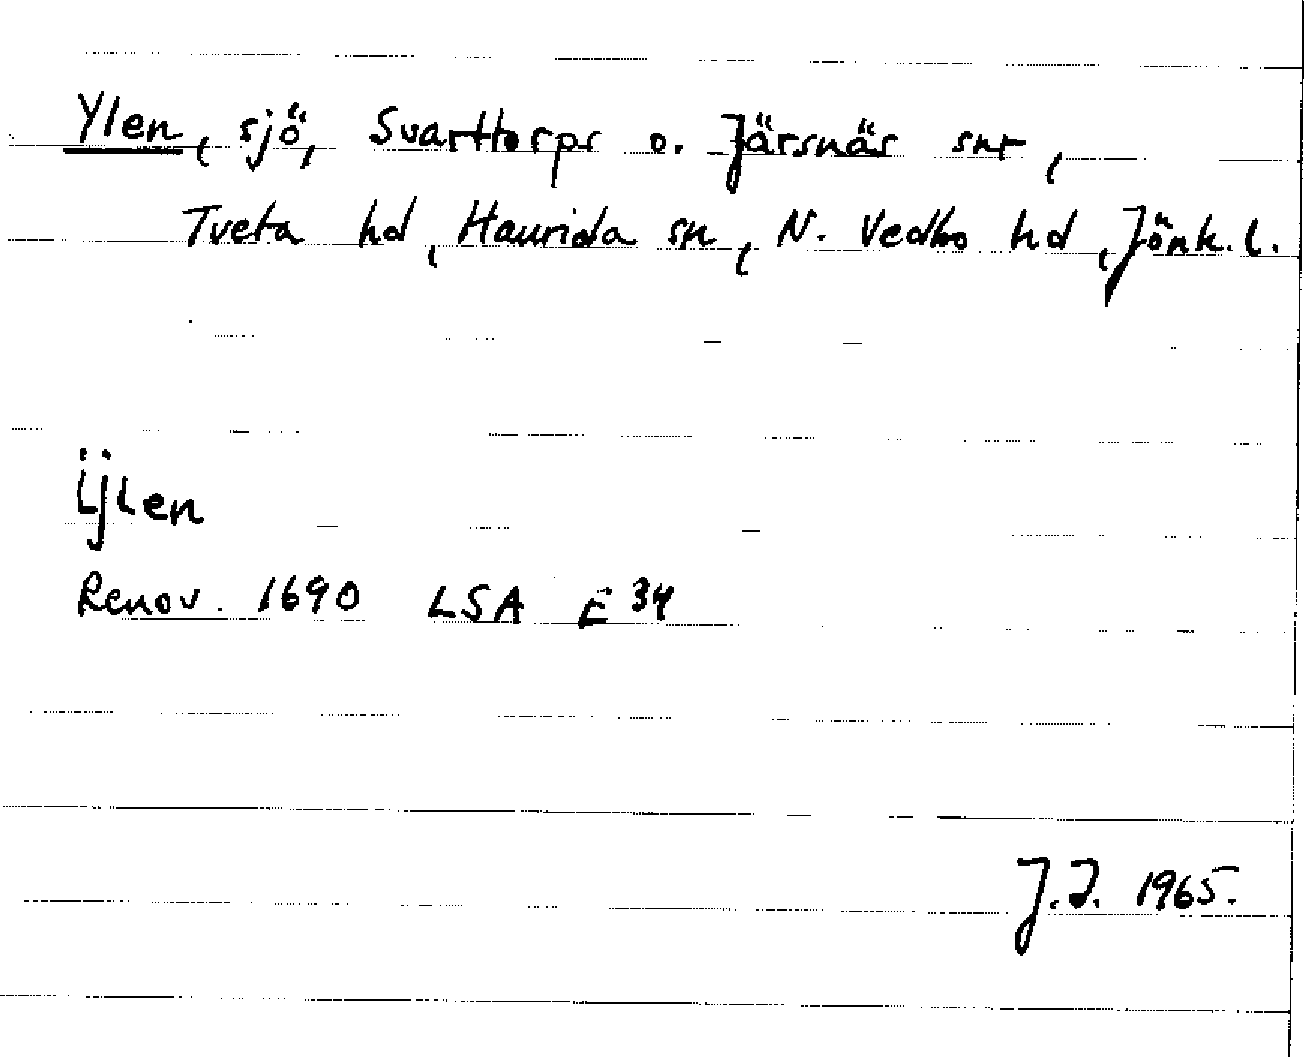 Ylen, sjö, Svarttorps o. Järsnäs snr,
Tveta hd, Haurida sn, N. Vedbo hd, Jönk. l.
Ÿlen
Renov. 1690 LSA E 34
J.I. 1965.